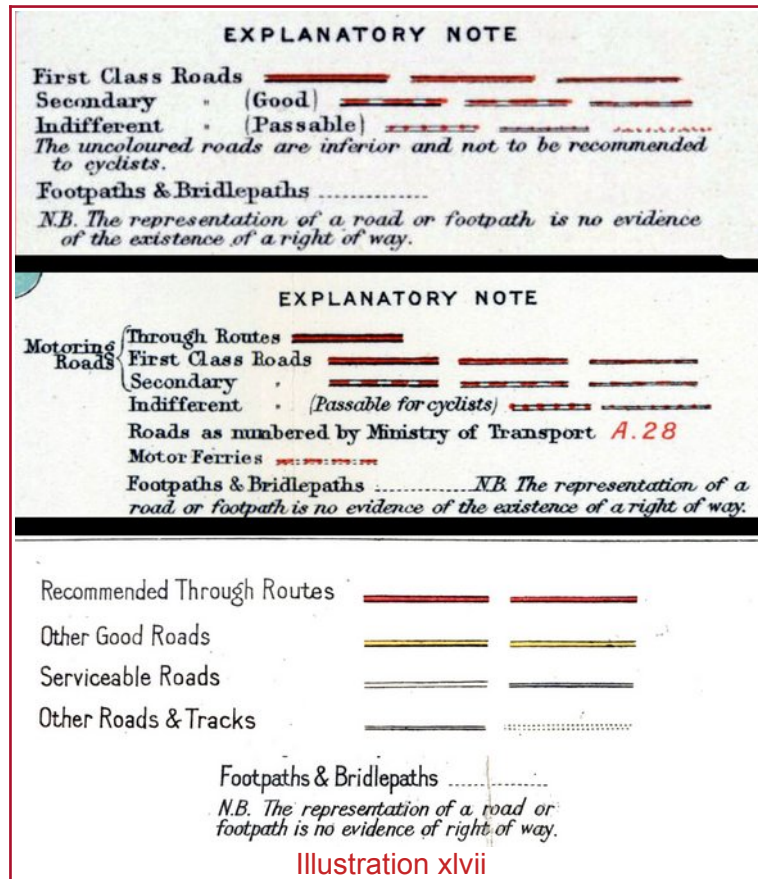 EXPLANATORY NOTE
First Class Roads
Secondary " (Good)
Indifferent " (Passable)
The uncoloured roads are inferior and not to be recommended
to cyclists.
Footpaths & Bridlepaths ................
N.B. The representation of a road or footpath is no evidence
of the existence of a right of way.
EXPLANATORY NOTE
Motoring Roads
Through Routes
First Class Roads
Secondary "
Indifferent " (Passable for cyclists)
Roads as numbered by Ministry of Transport A.28
Motor Ferries
Footpaths & Bridlepaths ................ N.B. The representation of a
road or footpath is no evidence of the existence of a right of way.
Recommended Through Routes
Other Good Roads
Serviceable Roads
Other Roads & Tracks
Footpaths & Bridlepaths ................
N.B. The representation of a road or
footpath is no evidence of right of way.
Illustration xlvii